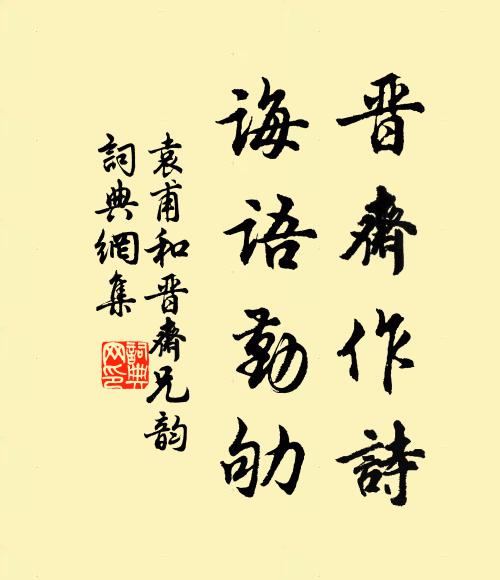 晋齋作詩
誨語勤劬
袁甫和晋齋兄韵
詞典網集
詞典網印